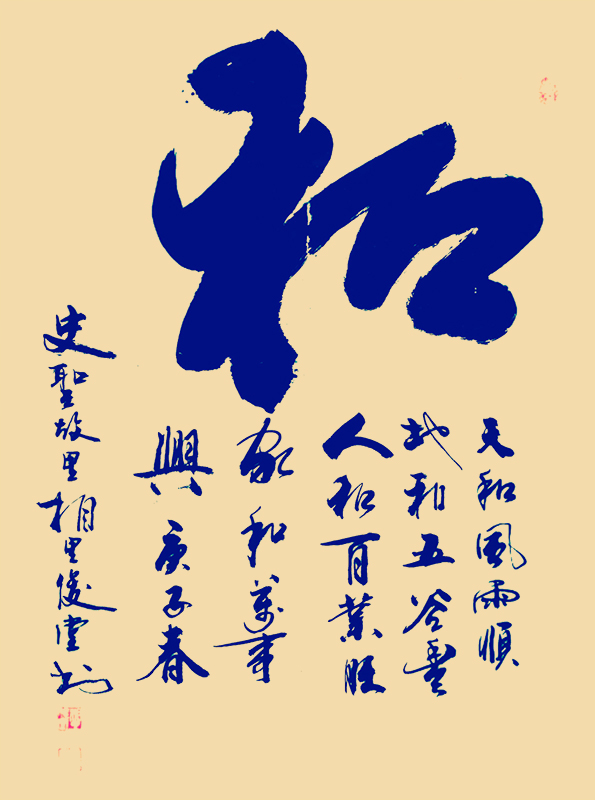 和
天和風雨順
地和五谷豐
人和百業旺
家和萬事
興 庚子春
史聖故里相里俊堂书